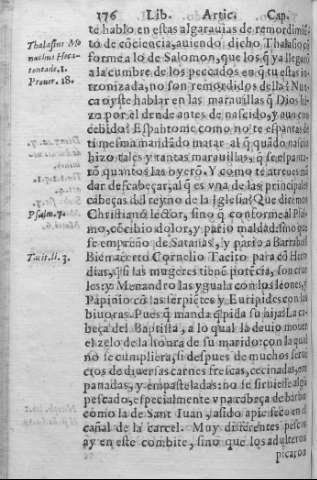 176 Lib. Artic. Cap.
te hablo en estas algarauias de remordimiẽ-
Thalasius Mo
to de cõciencia, auiendo dicho Thalasio cõ
nachus Heca
forme a lo de Salomon, que los q̃ ya llegarõ
tontade. 1.
a la cumbre de los peccados en q̃ tu estas in-
Prouer. 18.
tronizada, no son remordidos dellos? Nun
ca oyste hablar en las marauillas q̃ Dios hi-
zo por el dende antes de nascido, y aun con
cebido? Espantome como no te espantas de
ti mesma mandado matar al q̃ quãdo nascio
hizo tales y tantas marauillas, q̃ se espanta-
rõ quantos las oyerõ. Y como te atreues mã
dar descabeçar, al q̃ es vna de las principales
cabeças del reyno de la Iglesia? Que diremos
Psalm. 7.
Christiano lector, sino q̃ conforme al Psal-
mo, cõcibio dolor, y pario maldad: sino que
se empreño de Satanas, y pario a Barrabas?
Tacit. li. 3.
Bien acerto Cornelio Tacito para cõ Hero
dias, q̃ si las mugeres tienẽ potẽcia, son crue
les: y Menandro las yguala con los leones, y
Papinio cõ las serpiẽtes y Euripides con las
biuoras. Pues q̃ manda q̃ pida su hija? La ca-
beça del Baptista, a lo qual la deuio mouer
el zelo de la honra de su marido: con la qual
no se cumpliera, si despues de muchos serui
cios de diuersas carnes frescas, cecinadas, em
panadas, y empasteladas: no se siruiesse algũ
pescado, especialmente vna cabeça de barbo
como la de Sant Iuan, asido a pie seco en el
cañal de la carcel. Muy differentes pescas
ay en este combite, sino que los adulteros
picaron